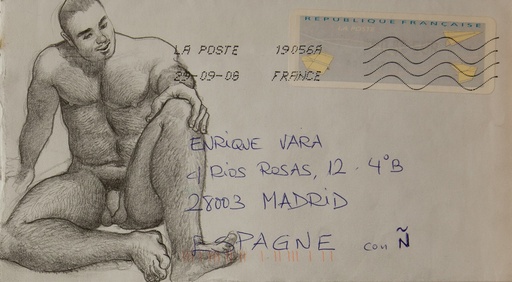 REPUBLIQUE FRANÇAISE
LA POSTE 19056A
29-09-08 FRANCE
ENRIQUE VARA
c/ RIOS ROSAS, 12 - 4°B
28003 MADRID
ESPAGNE con Ñ